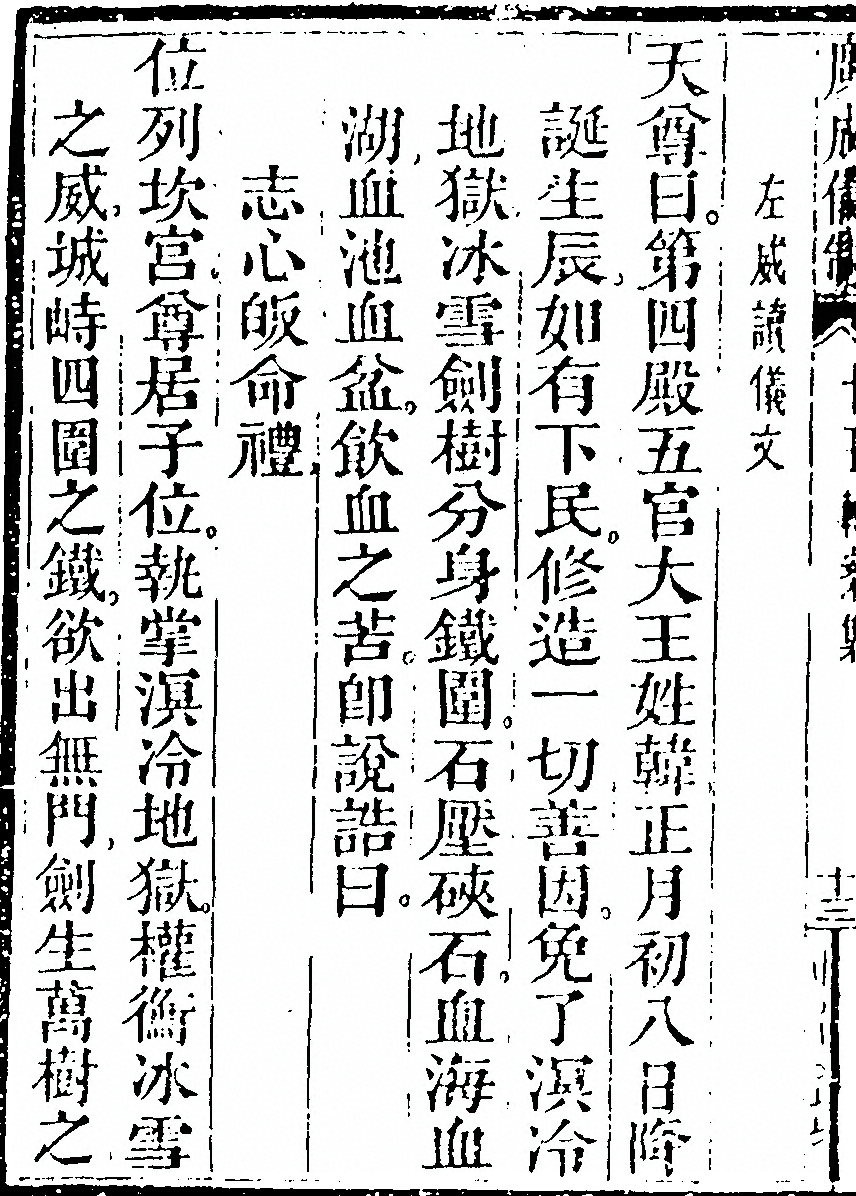 廣成儀制
十三
左威讀儀文
天尊曰。第四殿五官大王姓韓正月初八日降
誕生辰，如有下民。修造一切善因。免了溟冷
地獄冰雪劍樹分身鐵圍。石壓硤石。血海血
湖，血池血盆。飲血之苦。即說誥曰。
志心皈命禮，
位列坎宮，尊居子位。執掌溟冷地獄。權衡冰雪
之威，城峙四圍之鐵。欲出無門，劍生萬樹之